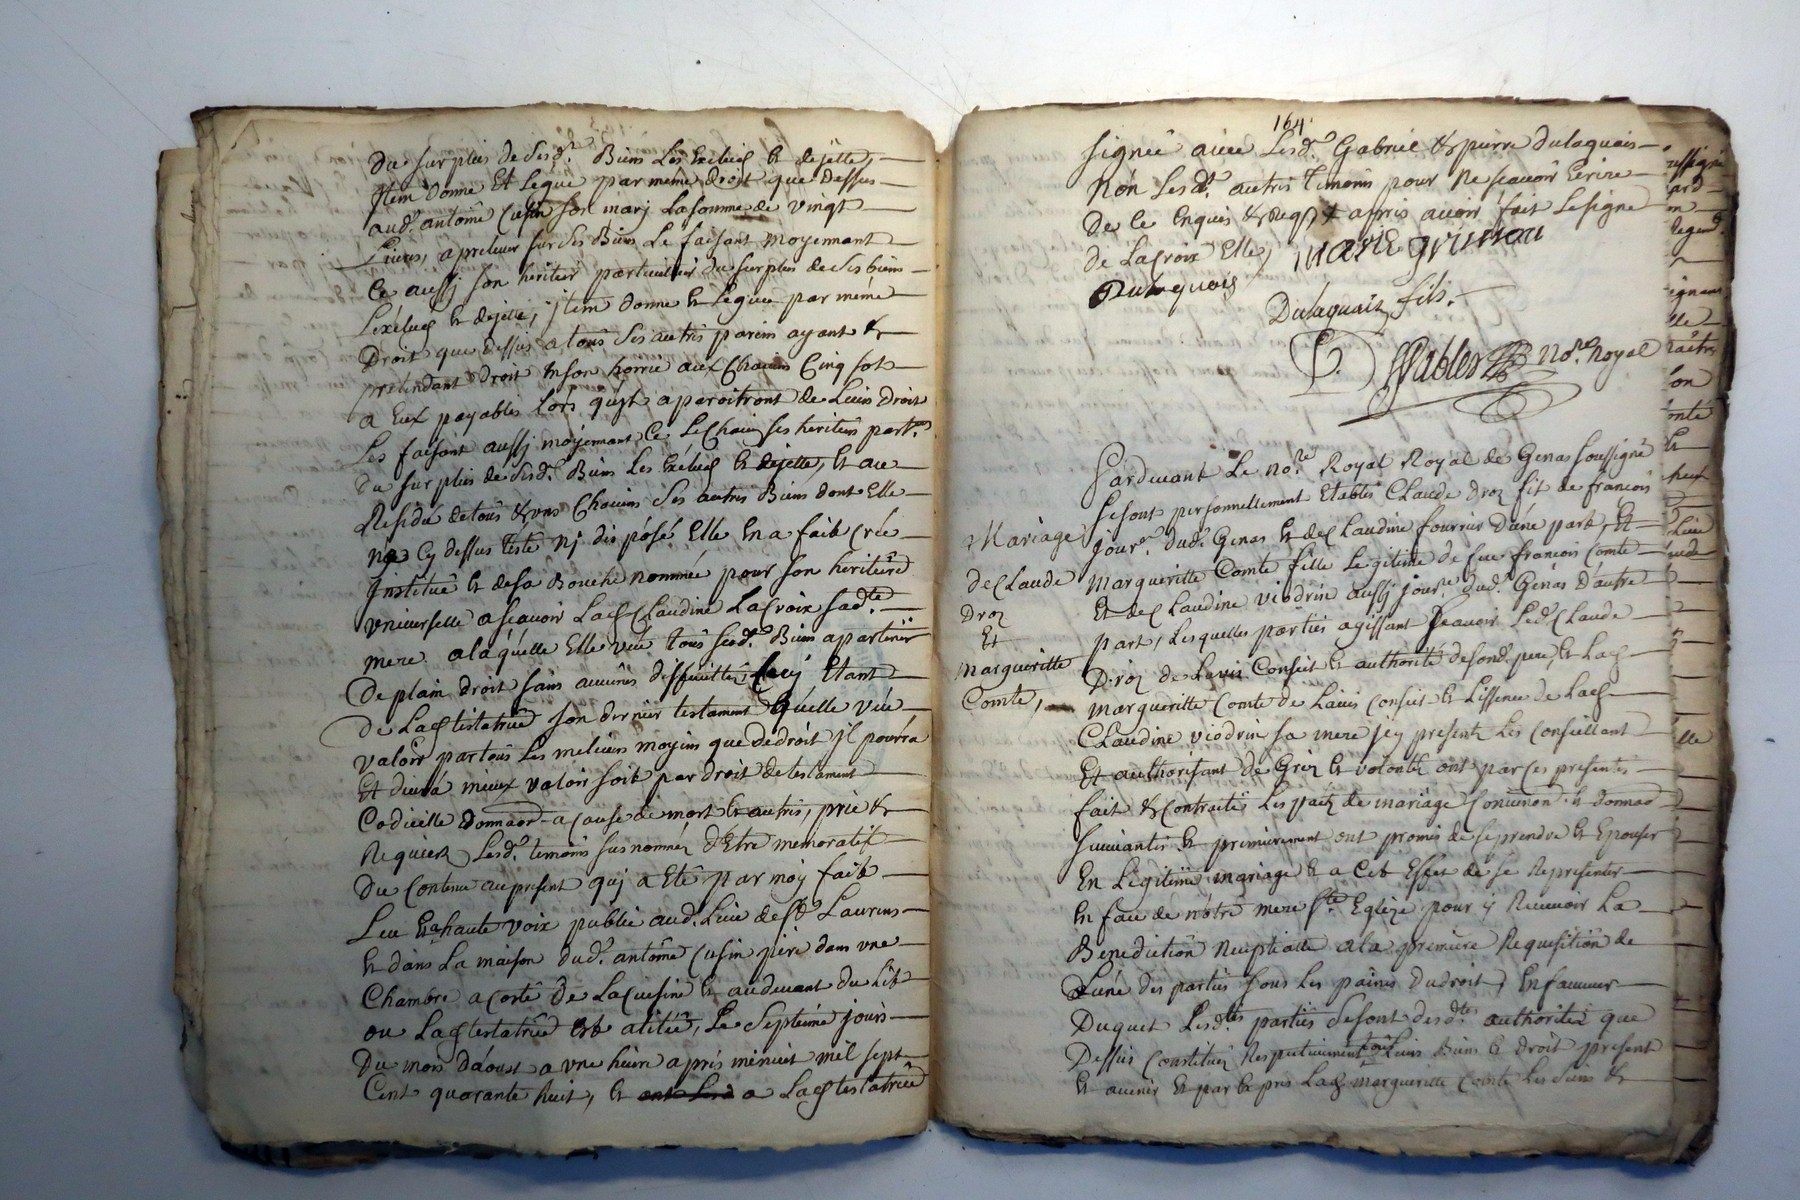 Du surplus de sesd. Biens les Exclus et dejette,
Jtem donne Et legue par meme droit que dessus
aud. antoine Cusin son marj La somme de vingt
Livres, a prelever sur ses Biens Le faisant moyennant
Ce aussj son heritier particulier du surplus de ses biens
L'exclus et dejette, jtem donne et legue par méme
Droit que dessus a tous ses autres parens ayant et
pretendant droit En son horrie aux Chacun Cinq sols
a Eux payables Lors qujls aparoitront de Leurs droit
Les faisant aussj moyennant Ce Le Chacun ses heritiers part.
du surplus de sesd. Biens Les Exclus et dejette, et au
Residu de tous et uns Chacuns ses autres Biens dont Elle
na Cy dessus testé nj disposé Elle En a fait Crée
Jnstitué et de sa Bouche nommée pour son heritiere
vniverselle a scavoir Lad Claudine LaCroix sad.te
mere. a laquelle Elle veut tous sesd. Biens apartenir
De plain droit sans aucunes difficultes, Cecy Etant
de Lad testatrice son dernier testament qu'elle veut
valoir par tous Les meliurs moyins que de droit jl pourra
Et devra mieux valoir soit par droit de testament
Codicille donnaon a cause de mort et autres, prie et
Requiert Lesd. temoins susnommez d'Etre memoratif
Du Contenu au present quj a Eté par moy fait
Leu Enhaute voix publié aud. Lieu de St Laurens
et dans La maison dud. antoine Cusin piere dans vne
Chambre a Coté de La Cuisine et au devant du Lit
ou Lad testatrice Est alitée, Le septieme jours
Du mois d'aoust a vne heure apres minuit mil sept
Cent quarante huit, et a Lad testatrice
164
signée avec Lesd. Gabriel et pierre dulaquais
Non Lesd. autres temoins pour ne scavoir Ecrire
De Ce Enquis et Reqs + apres avoir fait Le signe
de La Croix Elle,
Dulaquais
Dulaquais fils.
No.re Royal
Pardevant Le No.re Royal Royal de Genas soussigné
se sont personnellement Etablis Claude Droz fils de françois
Mariage
de Claude
Droz
Et
Margueritte
Comte,
jour.r dud. Genas et de Claudine fourrier d'une part, Et
Margueritte Comte fille Legitime de feu françois Comte
Et de Claudine viodrin aussj jour.re dud. Genas d'autre
part, Lesquelles parties agissant scavoir Led. Claude
Droz de Lavis Conseit et authorité de sond. pere, et Lad
margueritte Comte de Lavis Conseit et Lissence de Lad
Claudine viodrin sa mere jcy presentz Les Conseillant
Et authorisant de Grez et volonté ont par Ces presentes
fait et Contracté Les pacts de mariage et donnaon
suivantes et premierement ont promis de se prendre et Epouser
En Legitime mariage et a Cet Effet de se Representer
En face de nôtre mere Ste Eglize pour y Recevoir La
Benediction Neuptialle a la premiere Requesition de
L'une des parties sous Les paines du droit, En faveur
Duquel Lesd.tes parties se sont desd.tes authorites que
Dessus Constitués Respectivement tous Leurs Biens et droit present
et avenir Et par Exprés Lad margueritte Comte Les siens et